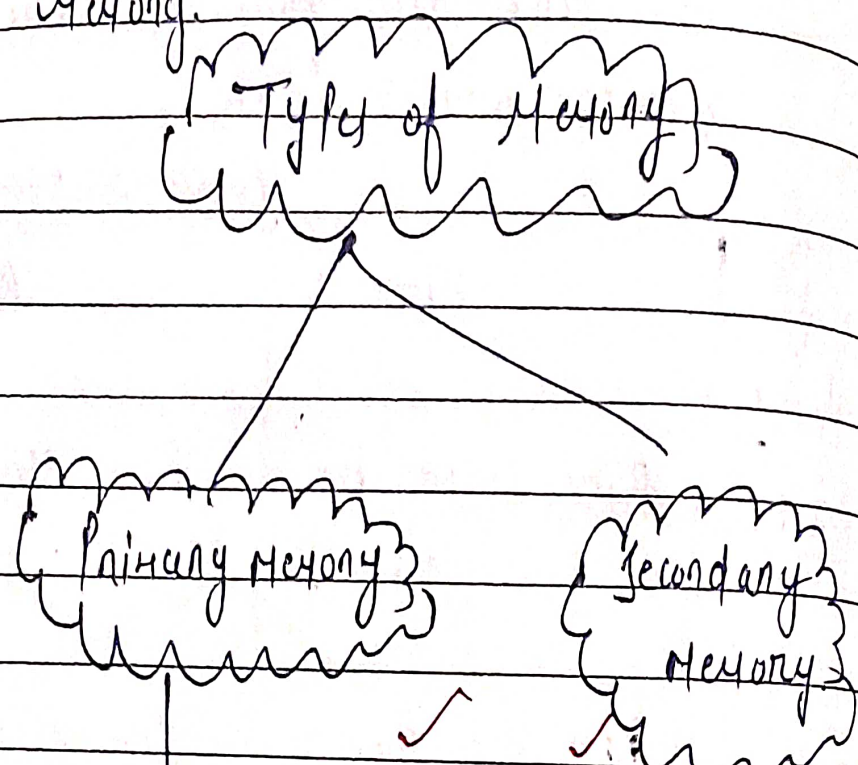 Memory.
Types of Memory
Primary memory
Secondary
Memory